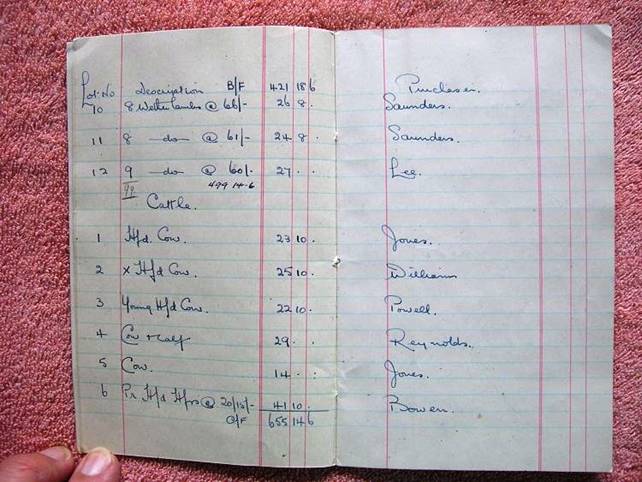 Lot. No Description B/F 421 18 6 Purchaser.
10 8 Wether Lambs @ 66/- 26 8 . Saunders.
11 8 — do — @ 61/- 24 8 . Saunders.
12 9 — do @ 60/- 27 . . Lee.
99 499 14 . 6
Cattle.
1 Hfd. Cow. 23 10 . Jones.
2 x Hfd Cow. 25 10 . Williams
3 Young Hfd Cow. 22 10 . Powell.
4 Cow & Calf 29 . . Reynolds.
5 Cow. 14 . . Jones.
6 Pr. Hfd Hfrs @ 20/15/- 41 10 . Bowen.
C/F 655 14 6